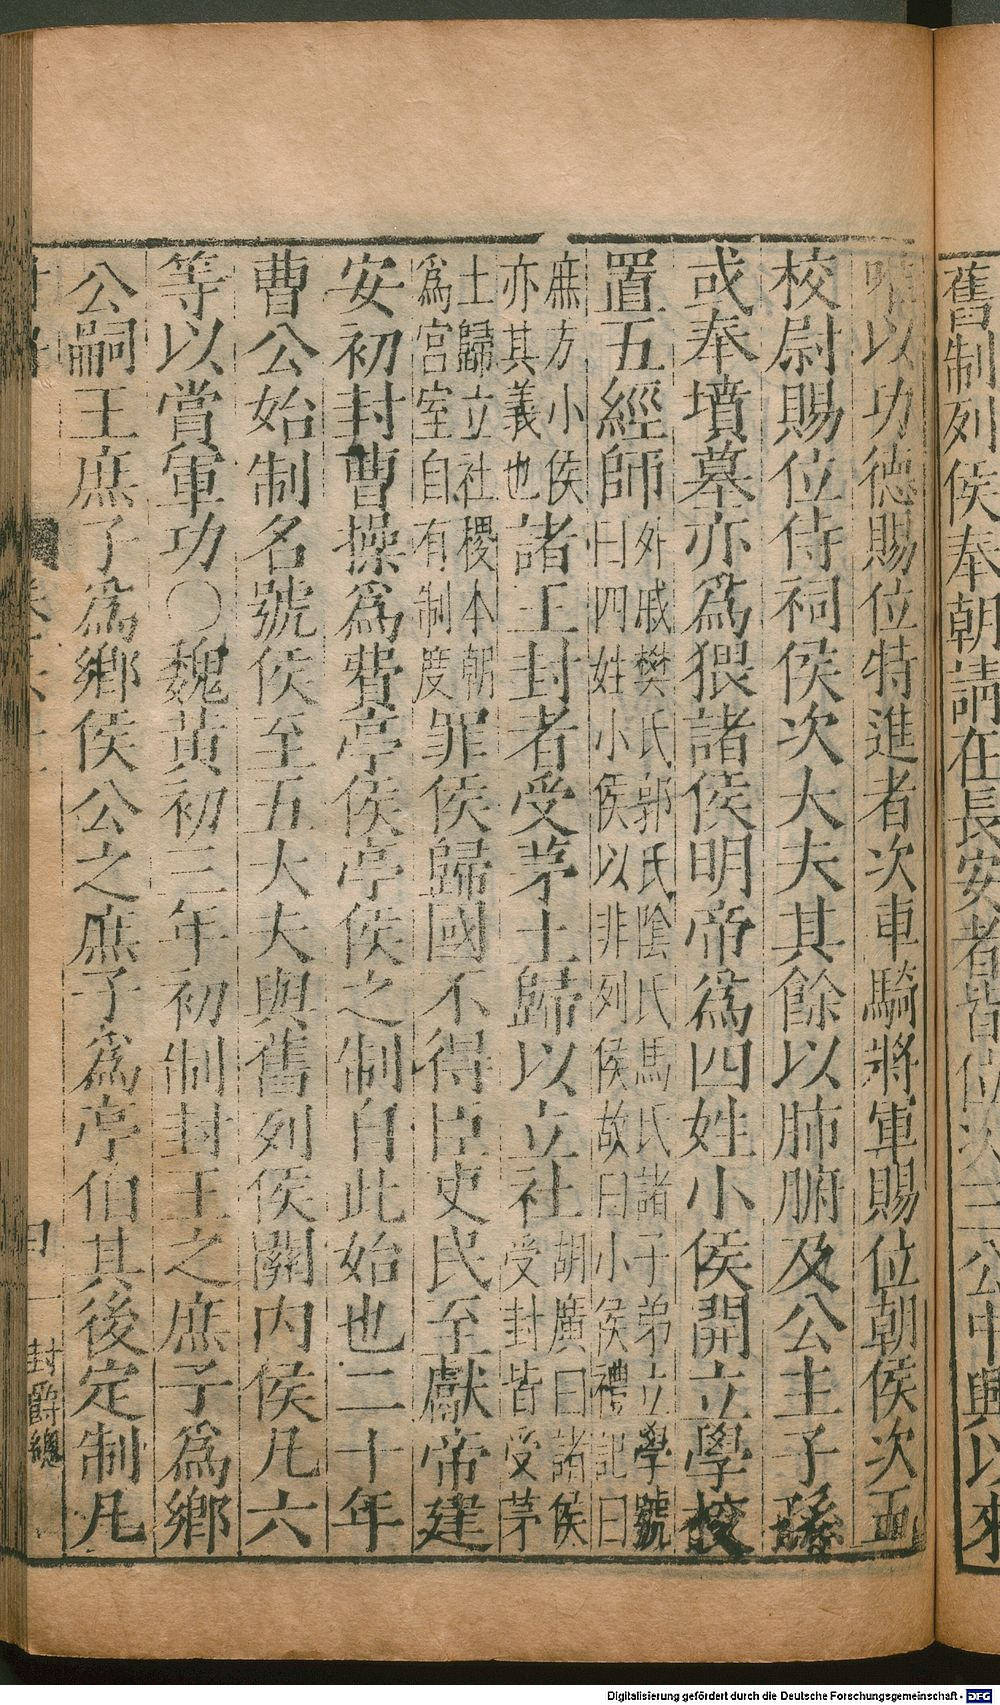 舊制列侯奉朝請在長安者皆位次三公中興以來
唯以功德賜位特進者次車騎將軍賜位朝侯次五
校尉賜位侍祠侯次大夫其餘以肺腑及公主子孫
或奉墳墓亦為猥諸侯明帝為四姓小侯開立學校
置五經師
外戚樊氏郭氏陰氏馬氏諸子弟立學號
曰四姓小侯以非列侯故曰小侯禮記曰
庶方小侯
亦其義也
諸王封者受茅土歸以立社
胡廣曰諸侯
受封皆受茅
土歸立社稷本朝
為宮室自有制度
罪侯歸國不得臣吏民至獻帝建
安初封曹操為費亭侯亭侯之制自此始也二十年
曹公始制名號侯至五大夫與舊列侯關內侯凡六
等以賞軍功○魏黃初三年初制封王之庶子為鄉
公嗣王庶子為鄉侯公之庶子為亭伯其後定制凡
封爵總
Digitalisierung gefördert durch die Deutsche Forschungsgemeinschaft - DFG